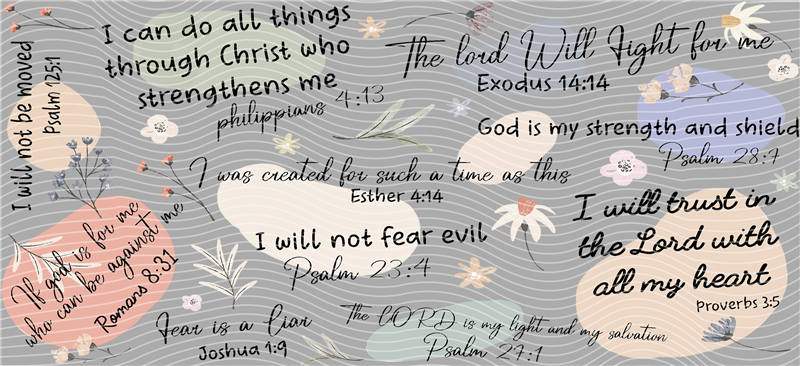 I will not be moved
Psalm 125:1
I can do all things
through Christ who
strengthens me
philippians 4:13
The lord Will Fight for me
Exodus 14:14
God is my strength and shield
Psalm 28:7
I was created for such a time as this
Esther 4:14
I will not fear evil
Psalm 23:4
I will trust in
the Lord with
all my heart
Proverbs 3:5
If god is for me
who can be against me
Romans 8:31
Fear is a liar
Joshua 1:9
The LORD is my light and my salvation
Psalm 27:1